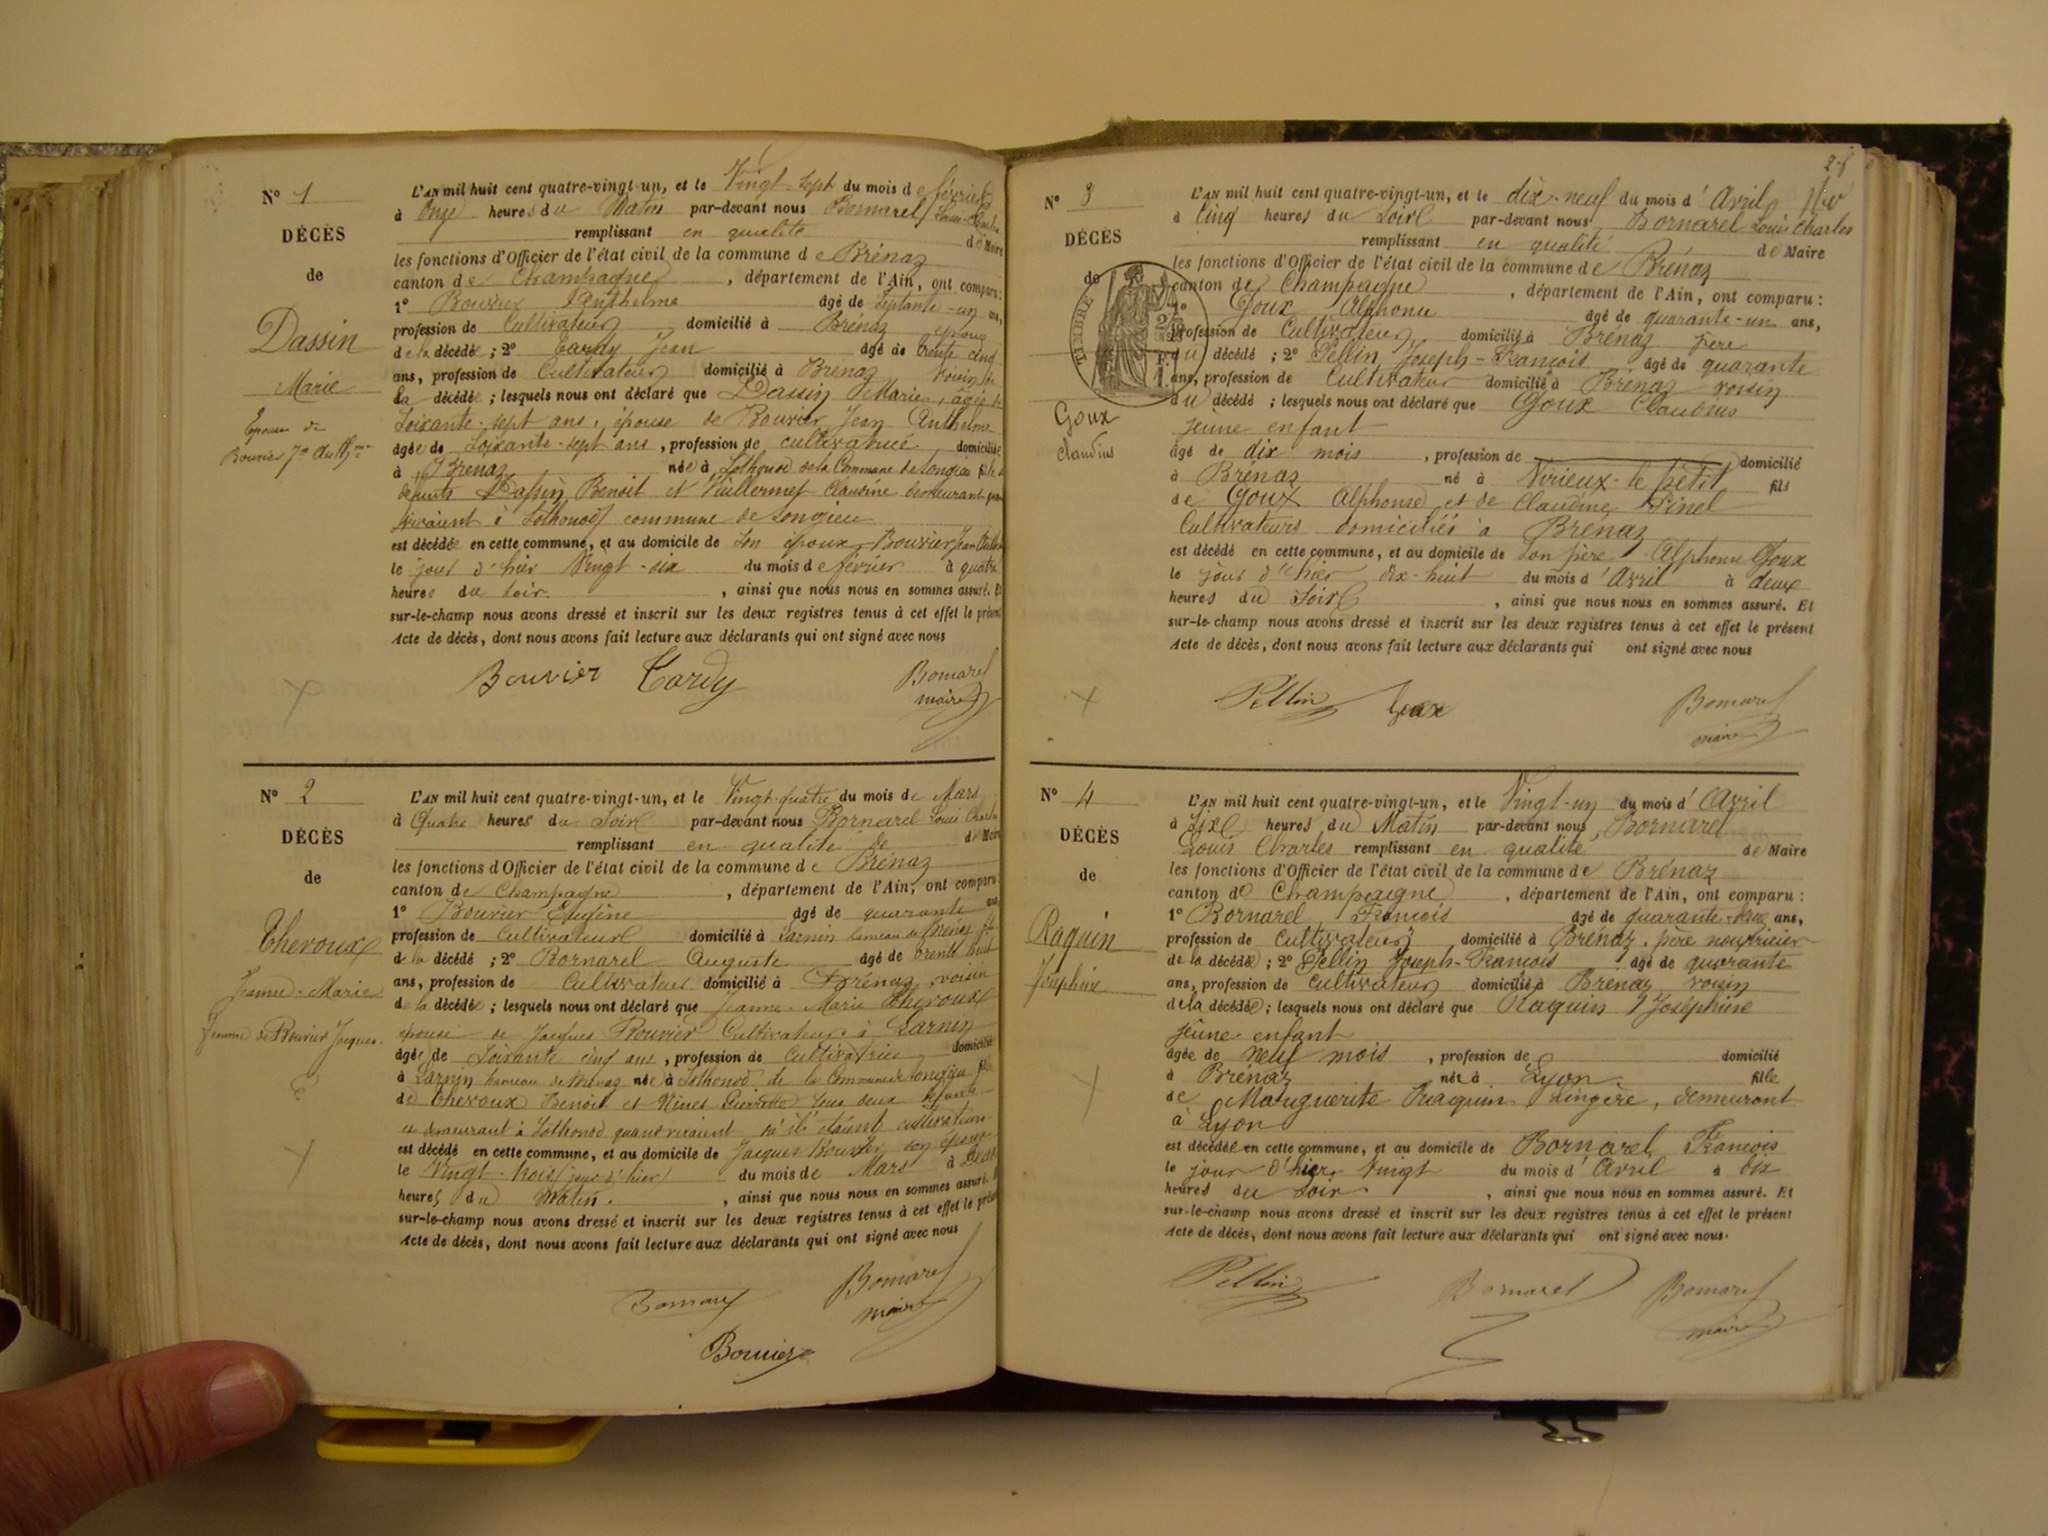 N° 1
DÉCÈS
de
Dassin
Marie
Epouse de
Bouvier Jn Anthme
L'AN mil huit cent quatre-vingt-un, et le Vingt-sept du mois de février
à Onze heures du Matin par-devant nous Bornarel Louis Charles
remplissant en qualité de Maire
les fonctions d'Officier de l'état civil de la commune de Brénaz
canton de Champagne, département de l'Ain, ont comparu:
1° Bouvier Anthelme âgé de septante-un ans,
profession de Cultivateur domicilié à Brénaz époux
de la décédée; 2° Tardy Jean âgé de trente cinq
ans, profession de Cultivateur domicilié à Brénaz voisin de
la décédée; lesquels nous ont déclaré que Dassin Marie, âgée de
soixante-sept ans, épouse de Bouvier Jean Anthelme
âgée de soixante-sept ans, profession de cultivatrice domiciliée
à Brénaz née à Lothonod de la Commune de Songieu fille de
défunts Dassin Benoit et Vuillermet Claudine demeurant quand
vivaient à Lothonod commune de Songieu
est décédée en cette commune, et au domicile de son époux Bouvier Jean Anthelme
le jour d'hier Vingt-six du mois de février à quatre
heures du soir, ainsi que nous nous en sommes assuré. Et
sur-le-champ nous avons dressé et inscrit sur les deux registres tenus à cet effet le présent
Acte de décès, dont nous avons fait lecture aux déclarants qui ont signé avec nous
Bouvier Tardy Bornarel
maire
N° 2
DÉCÈS
de
Theroux
Jeanne-Marie
Femme de Bouvier Jacques
L'AN mil huit cent quatre-vingt-un, et le Vingt-quatre du mois de Mars
à Quatre heures du Soir par-devant nous Bornarel Louis Charles
remplissant en qualité de de Maire
les fonctions d'Officier de l'état civil de la commune de Brénaz
canton de Champagne, département de l'Ain, ont comparu:
1° Bouvier Eugène âgé de quarante ans
profession de Cultivateur domicilié à Larnin hameau de Brénaz fils
de la décédée; 2° Bornarel Auguste âgé de trente huit
ans, profession de Cultivateur domicilié à Brénaz, voisin
de la décédée; lesquels nous ont déclaré que Jeanne-Marie Theroux
épouse de Jacques Bouvier Cultivateur à Larnin
âgée de soixante cinq ans, profession de Cultivatrice domiciliée
à Larnin hameau de Brénaz née à Lothonod de la Commune de Songieu fille
de Theroux Benoit et Ninet Pierrette tous deux défunts
et demeurant à Lothonod quand vivaient où ils étaient cultivateurs
est décédé en cette commune, et au domicile de Jacques Bouvier son époux
le Vingt-trois (jour d'hier) du mois de Mars à
heures du Matin, ainsi que nous nous en sommes assuré. Et
sur-le-champ nous avons dressé et inscrit sur les deux registres tenus à cet effet le présent
Acte de décès, dont nous avons fait lecture aux déclarants qui ont signé avec nous
Bornarel Bornarel
maire
Bouvier
N° 3
DÉCÈS
de
TIMBRE
Goux
Claudius
L'AN mil huit cent quatre-vingt-un, et le dix-neuf du mois d'Avril
à Cinq heures du Soir par-devant nous Bornarel Louis Charles
remplissant en qualité de Maire
les fonctions d'Officier de l'état civil de la commune de Brénaz
canton de Champagne, département de l'Ain, ont comparu:
1° Goux Alphonse âgé de quarante-un ans,
profession de Cultivateur domicilié à Brénaz père
du décédé; 2° Pellin Joseph-François âgé de quarante
ans, profession de Cultivateur domicilié à Brénaz voisin
du décédé; lesquels nous ont déclaré que Goux Claudius
jeune enfant
âgé de dix mois, profession de domicilié
à Brénaz né à Virieux-le-petit fils
de Goux Alphonse et de Claudine Pinel
Cultivateurs domiciliés à Brénaz
est décédé en cette commune, et au domicile de son père Alphonse Goux
le jour d'hier dix-huit du mois d'Avril à deux
heures du Soir, ainsi que nous nous en sommes assuré. Et
sur-le-champ nous avons dressé et inscrit sur les deux registres tenus à cet effet le présent
Acte de décès, dont nous avons fait lecture aux déclarants qui ont signé avec nous
Pellin Goux Bornarel
maire
N° 4
DÉCÈS
de
Raquin
Joséphine
L'AN mil huit cent quatre-vingt-un, et le Vingt-un du mois d'Avril
à Six heures du Matin par-devant nous, Bornarel
Louis Charles remplissant en qualité de Maire
les fonctions d'Officier de l'état civil de la commune de Brénaz
canton de Champagne, département de l'Ain, ont comparu:
1° Bornarel François âgé de quarante-deux ans,
profession de cultivateur domicilié à Brénaz, père nourricier
de la décédée; 2° Pellin Joseph-François âgé de quarante
ans, profession de cultivateur domicilié à Brénaz voisin
de la décédée; lesquels nous ont déclaré que Raquin Joséphine
jeune enfant
âgée de neuf mois, profession de domicilié
à Brénaz née à Lyon. fille
de Marguerite Raquin Lingère, demeurant
à Lyon
est décédée en cette commune, et au domicile de Bornarel François
le jour d'hier Vingt du mois d'Avril à dix
heures du soir, ainsi que nous nous en sommes assuré. Et
sur-le-champ nous avons dressé et inscrit sur les deux registres tenus à cet effet le présent
Acte de décès, dont nous avons fait lecture aux déclarants qui ont signé avec nous.
Pellin Bornarel Bornarel
maire